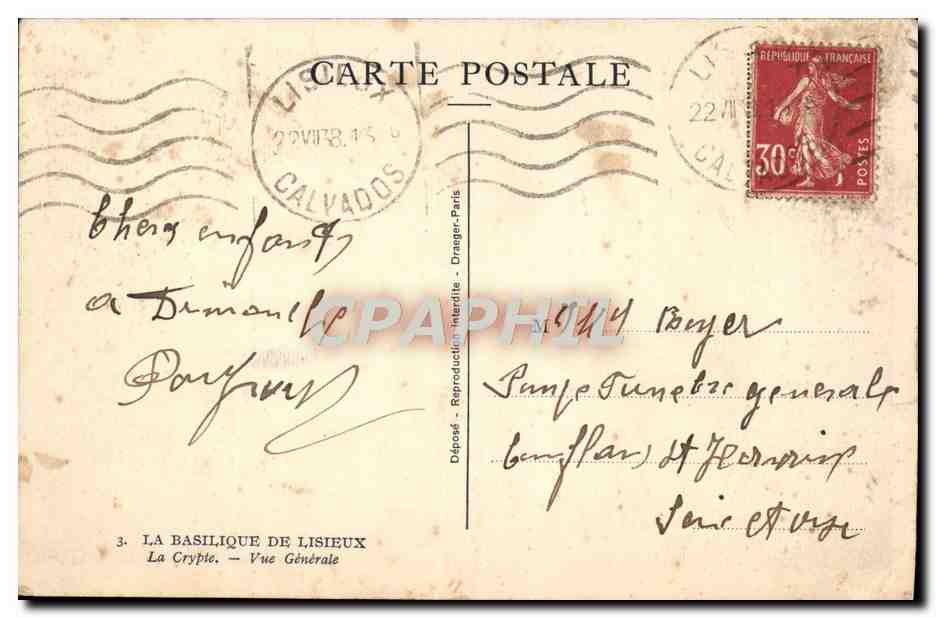 CARTE POSTALE
LISIEUX
22 VII 38
CALVADOS
LI
22 VII
CAL
RÉPUBLIQUE FRANÇAISE
30c
POSTES
Chers enfants
a Dimanche
Déposé - Reproduction Interdite - Draeger-Paris
CPAPHIL
M Boyer
Pompe Funebre generale
Conflans St Honorine
Seine et oise
3. LA BASILIQUE DE LISIEUX
La Crypte. — Vue Générale